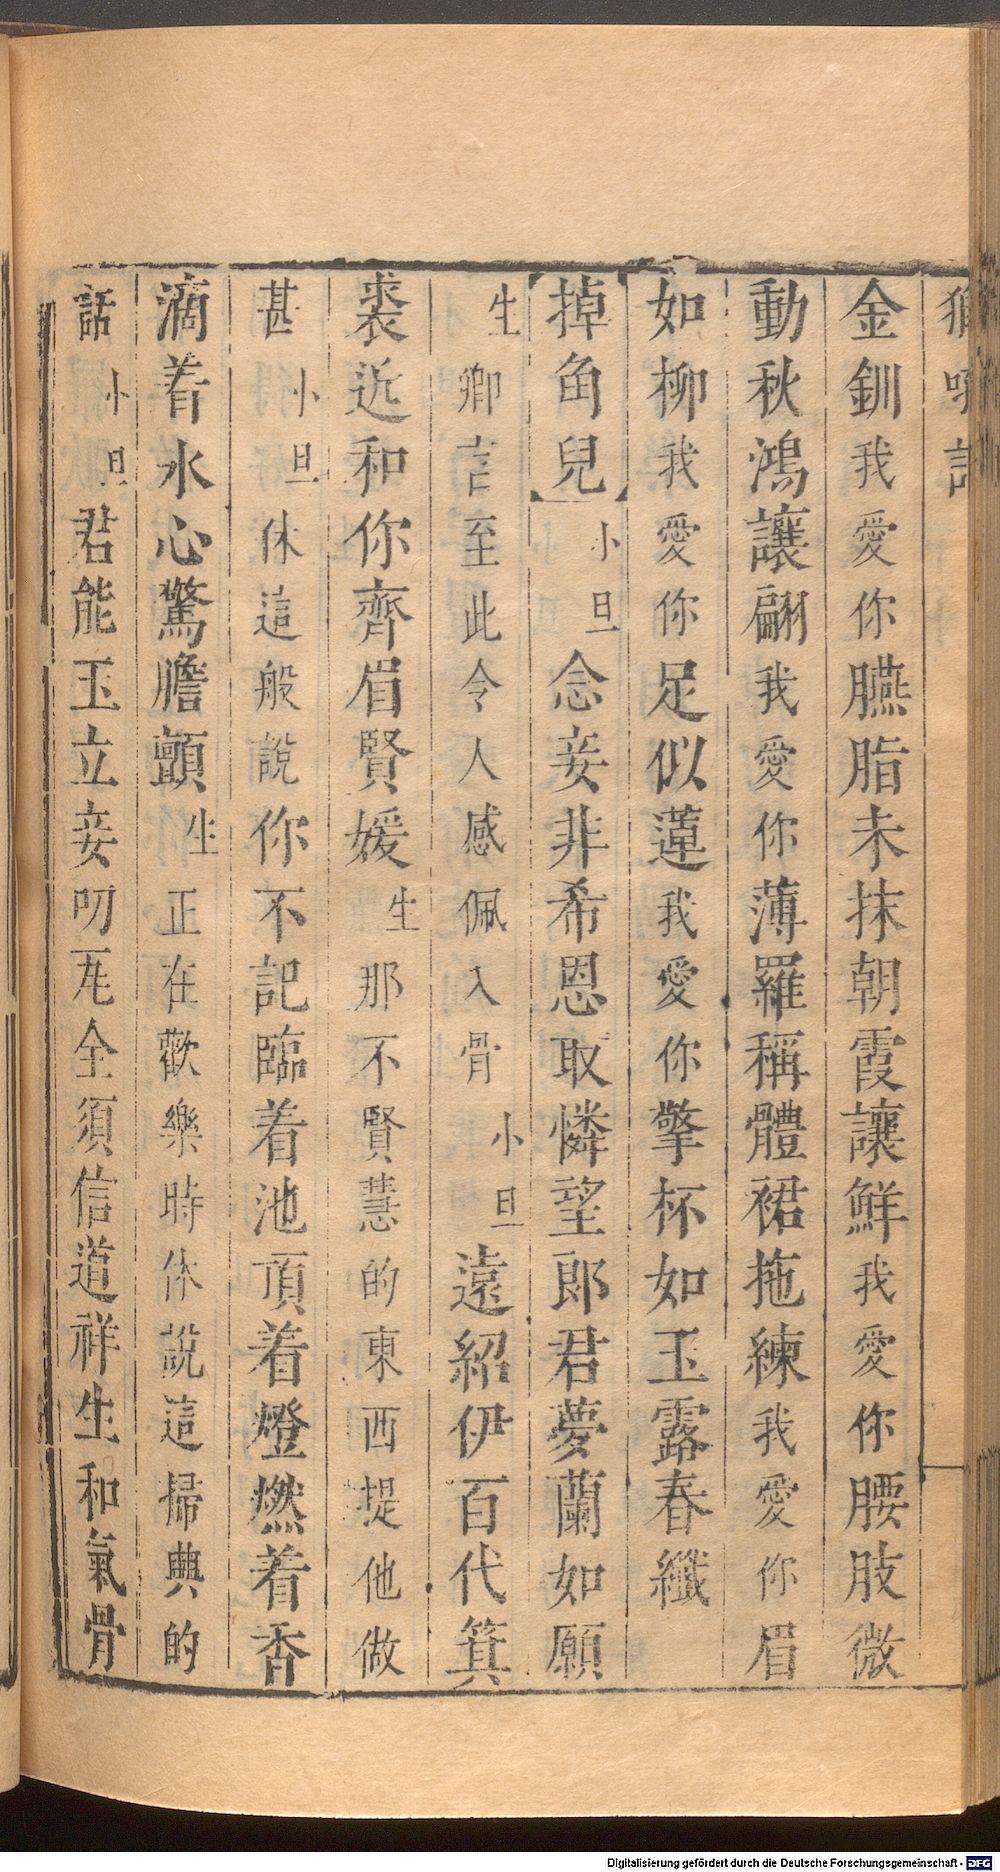 金釧我愛你臙脂未抹朝霞讓鮮我愛你腰肢微
動秋鴻讓翩我愛你薄羅稱體裙拖練我愛你眉
如柳我愛你足似蓮我愛你擎杯如玉露春纖
【掉角兒】小旦念妾非希恩取憐望郎君夢蘭如願
生卿言至此令人感佩入骨小旦遠紹伊百代箕
裘近和你齊眉賢媛生那不賢慧的東西提他做
甚小旦休這般說你不記臨着池頂着燈燃着香
滴着水心驚膽顫生正在歡樂時休說這掃典的
話小旦君能玉立妾叨瓦全須信道祥生和氣骨
Digitalisierung gefördert durch die Deutsche Forschungsgemeinschaft - DFG